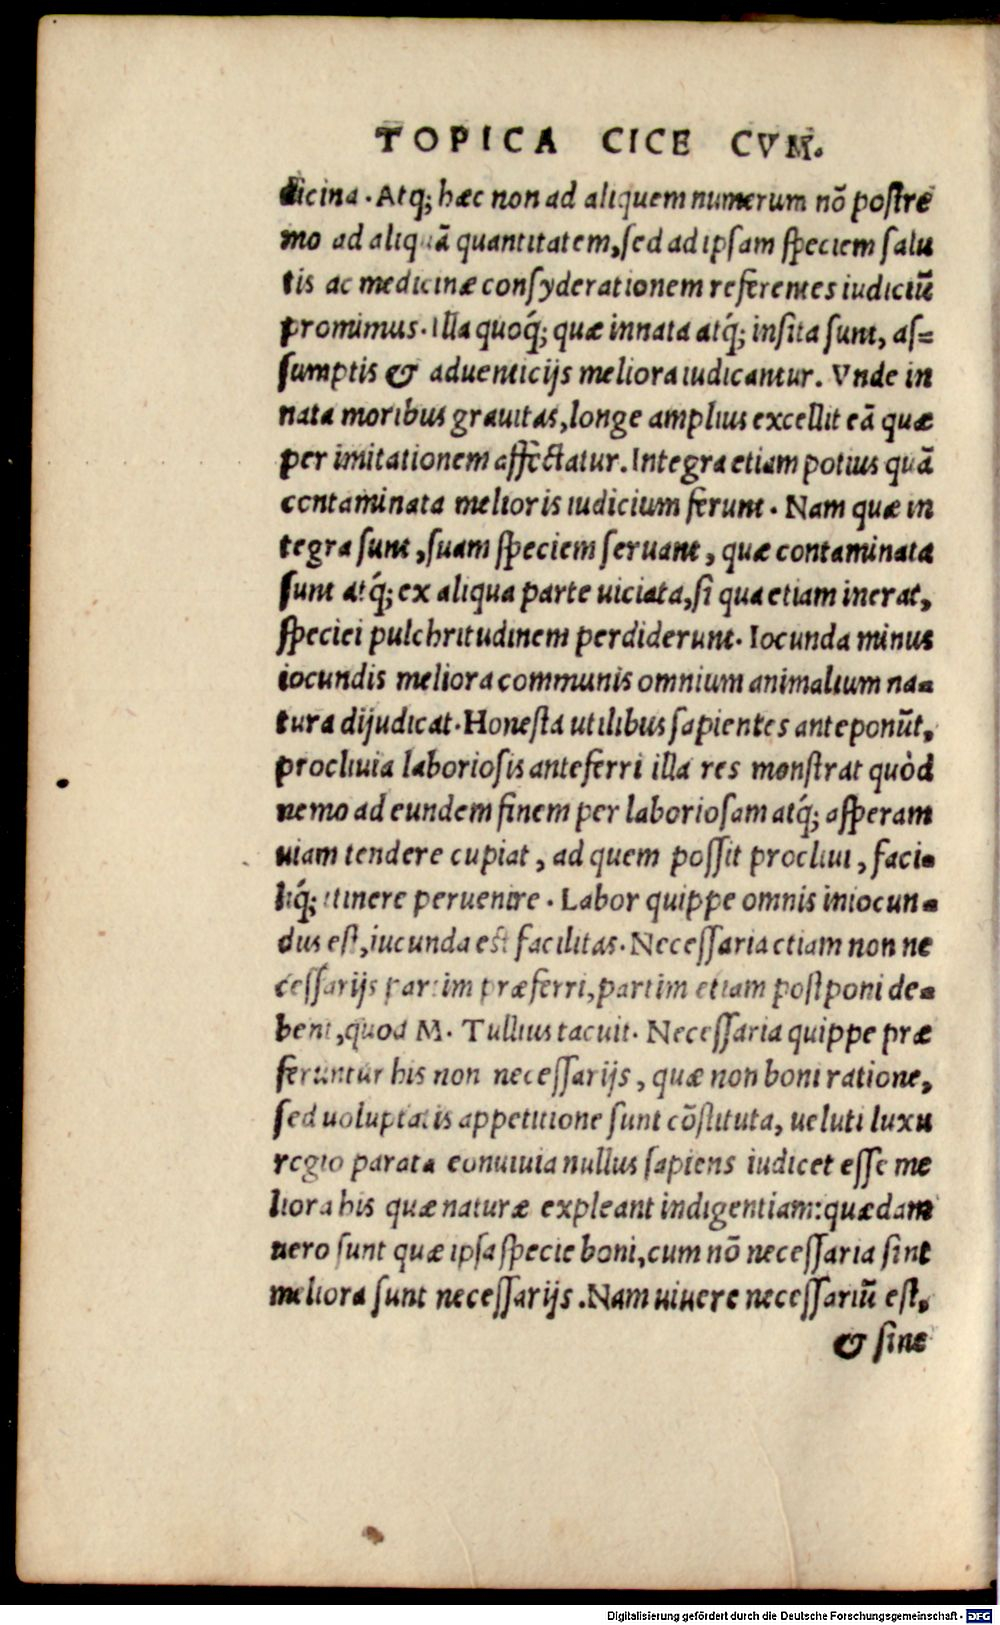 TOPICA CICE CVM.
dicina. Atq; hæc non ad aliquem numerum nõ postre
mo ad aliquã quantitatem, sed ad ipsam speciem salu
tis ac medicinæ consyderationem referentes iudiciũ
promimus. Illa quoq́; quæ innata atq́; insita sunt, as=
sumptis & aduenticijs meliora iudicantur. Vnde in
nata moribus grauitas, longe amplius excellit eã quæ
per imitationem affectatur. Integra etiam potius quã
contaminata melioris iudicium ferunt. Nam quæ in
tegra sunt, suam speciem seruant, quæ contaminata
sunt atq́; ex aliqua parte uiciata, si qua etiam inerat,
speciei pulchritudinem perdiderunt. Iocunda minus
iocundis meliora communis omnium animalium na=
tura dijudicat. Honesta utilibus sapientes anteponũt,
procliuia laboriosis anteferri illa res monstrat quòd
nemo ad eundem finem per laboriosam atq́; asperam
uiam tendere cupiat, ad quem possit procliui, faci=
liq́; itinere peruenire. Labor quippe omnis iniocun=
dus est, iucunda est facilitas. Necessaria etiam non ne
cessarijs partim præferri, partim etiam postponi de=
bent, quod M. Tullius tacuit. Necessaria quippe præ
feruntur his non necessarijs, quæ non boni ratione,
sed uoluptatis appetitione sunt cõstituta, ueluti luxu
regio parata conuiuia nullus sapiens iudicet esse me
liora his quæ naturæ expleant indigentiam: quædam
uero sunt quæ ipsa specie boni, cum nõ necessaria sint
meliora sunt necessarijs. Nam uiuere necessariũ est,
& sine
Digitalisierung gefördert durch die Deutsche Forschungsgemeinschaft - DFG